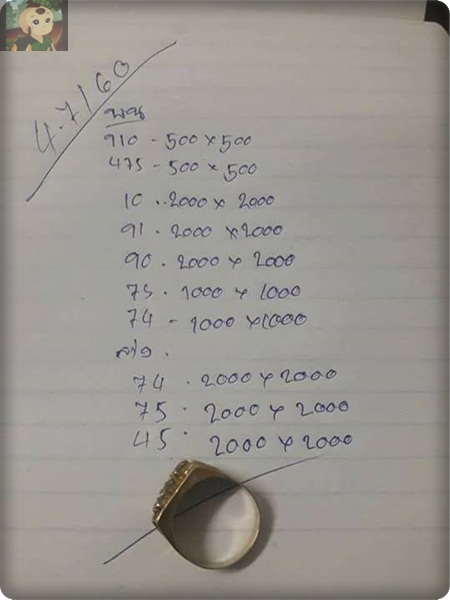 4.7/60
บน
910 - 500 x 500
475 - 500 x 500
10 .. 2000 x 2000
91 . 2000 x 2000
90 . 2000 x 2000
75 . 1000 x 1000
74 - 1000 x 1000
ล่าง .
74 . 2000 x 2000
75 . 2000 x 2000
45 . 2000 x 2000